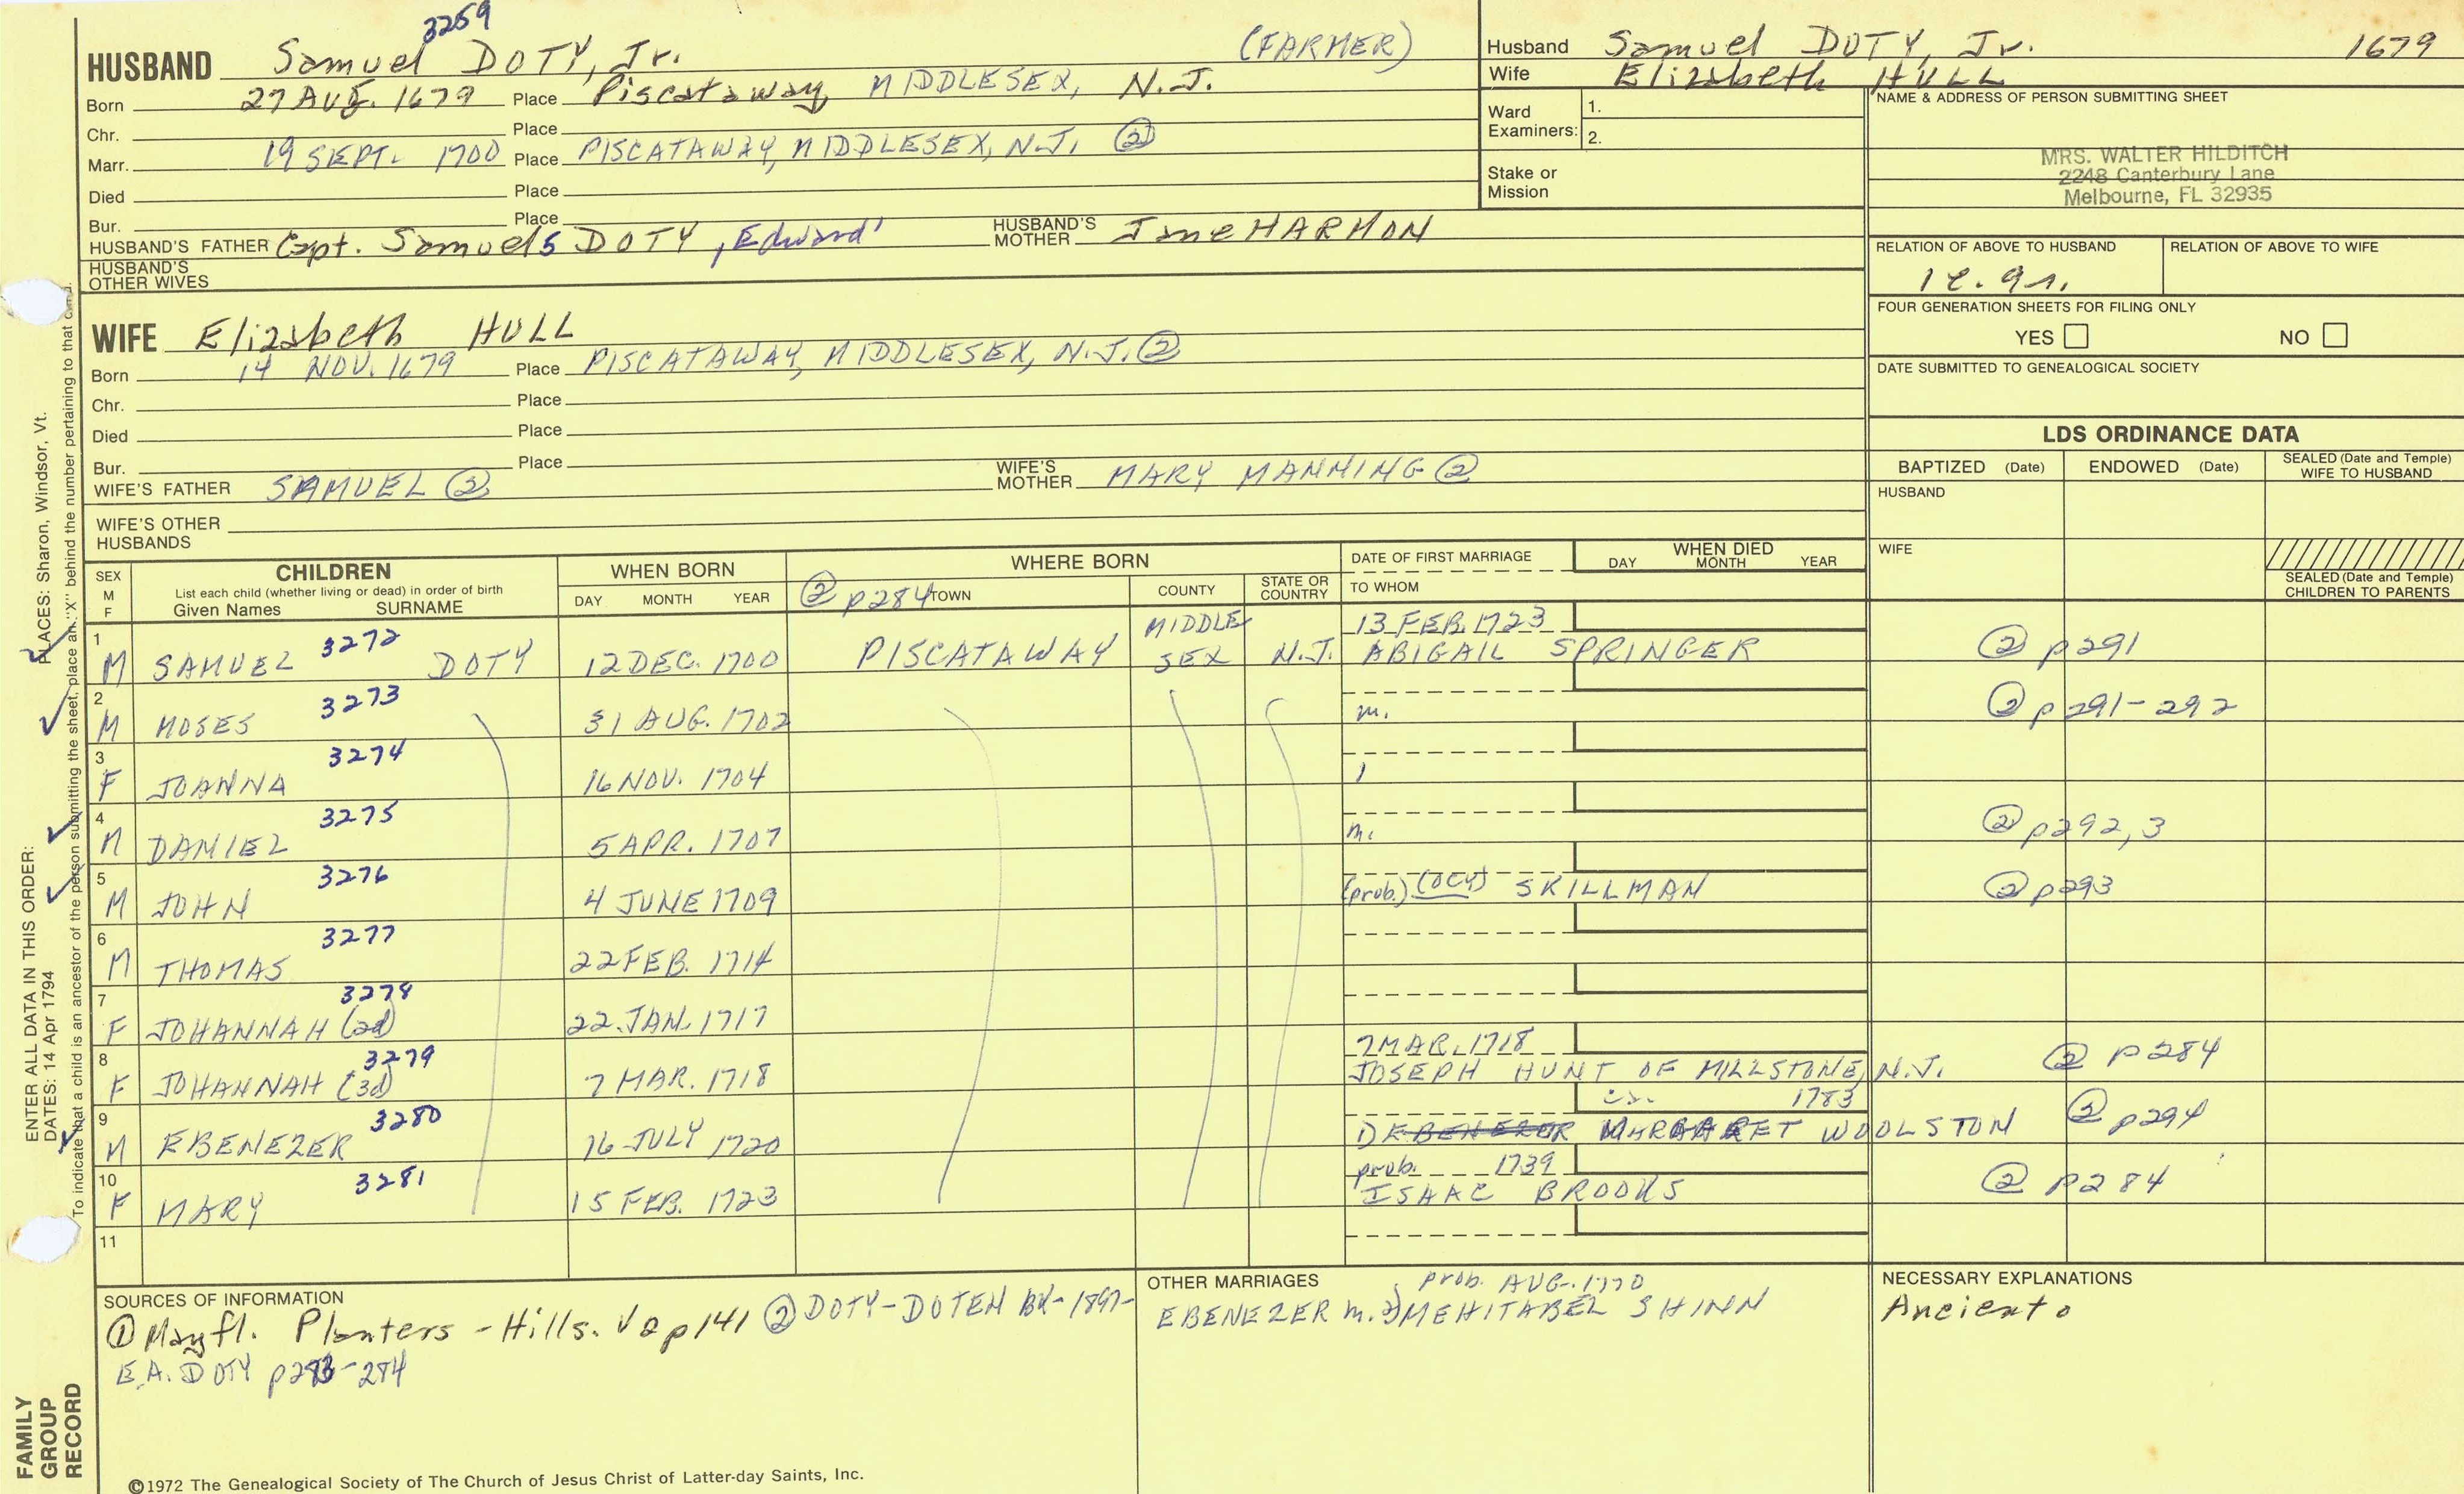 3259
HUSBAND Samuel DOTY, Jr. (FARMER)
Born 27 AUG. 1679 Place Piscataway, MIDDLESEX, N.J.
Chr. Place
Marr. 19 SEPT. 1700 Place PISCATAWAY, MIDDLESEX, N.J. ②
Died Place
Bur. Place
HUSBAND'S FATHER Capt. Samuel5 DOTY, Edward' HUSBAND'S MOTHER Jane HARMON
HUSBAND'S OTHER WIVES
WIFE Elizabeth HULL
Born 14 NOV. 1679 Place PISCATAWAY, MIDDLESEX, N.J. ②
Chr. Place
Died Place
Bur. Place
WIFE'S FATHER SAMUEL ② WIFE'S MOTHER MARY MANNING ②
WIFE'S OTHER HUSBANDS
Husband Samuel DOTY, Jr. 1679
Wife Elizabeth HULL
Ward Examiners: 1.
2.
Stake or Mission
NAME & ADDRESS OF PERSON SUBMITTING SHEET
MRS. WALTER HILDITCH
2248 Canterbury Lane
Melbourne, FL 32935
RELATION OF ABOVE TO HUSBAND RELATION OF ABOVE TO WIFE
FOUR GENERATION SHEETS FOR FILING ONLY
YES NO
DATE SUBMITTED TO GENEALOGICAL SOCIETY
LDS ORDINANCE DATA
BAPTIZED (Date) ENDOWED (Date) SEALED (Date and Temple) WIFE TO HUSBAND
HUSBAND
WIFE
SEALED (Date and Temple) CHILDREN TO PARENTS
SEX M F
CHILDREN
List each child (whether living or dead) in order of birth
Given Names SURNAME
WHEN BORN
DAY MONTH YEAR
WHERE BORN
② p284 TOWN COUNTY STATE OR COUNTRY
DATE OF FIRST MARRIAGE
TO WHOM
WHEN DIED
DAY MONTH YEAR
1 3272 MIDDLE 13 FEB. 1723
M SAMUEL DOTY 12 DEC. 1700 PISCATAWAY SEX N.J. ABIGAIL SPRINGER ② p291
2 3273
M MOSES 31 AUG. 1702 m. ② p291-292
3 3274
F JOANNA 16 NOV. 1704
4 3275
M DANIEL 5 APR. 1707 m. ② p292,3
5 3276
M JOHN 4 JUNE 1709 (prob.) (OCY) SKILLMAN ② p293
6 3277
M THOMAS 22 FEB. 1714
7 3278
F JOHANNAH (2d) 22 JAN. 1717
8 3279 7 MAR. 1718
F JOHANNAH (3d) 7 MAR. 1718 JOSEPH HUNT OF MILLSTONE, N.J. ② p284
9 3280 ca. 1783
M EBENEZER 16 JULY 1720 MARGARET WOOLSTON ② p294
10 3281 prob. 1739
F MARY 15 FEB. 1723 ISAAC BROOKS ② p284
11
SOURCES OF INFORMATION
① Mayfl. Planters - Hills. V2 p141 ② DOTY-DOTEN BK-1897-
E.A. DOTY p283-284
OTHER MARRIAGES prob. AUG. 1770
EBENEZER m. 2) MEHITABEL SHINN
NECESSARY EXPLANATIONS
Ancient
©1972 The Genealogical Society of The Church of Jesus Christ of Latter-day Saints, Inc.
FAMILY GROUP RECORD
ENTER ALL DATA IN THIS ORDER:
DATES: 14 Apr 1794
PLACES: Sharon, Windsor, Vt.
To indicate that a child is an ancestor of the person submitting the sheet, place an "X" behind the number pertaining to that